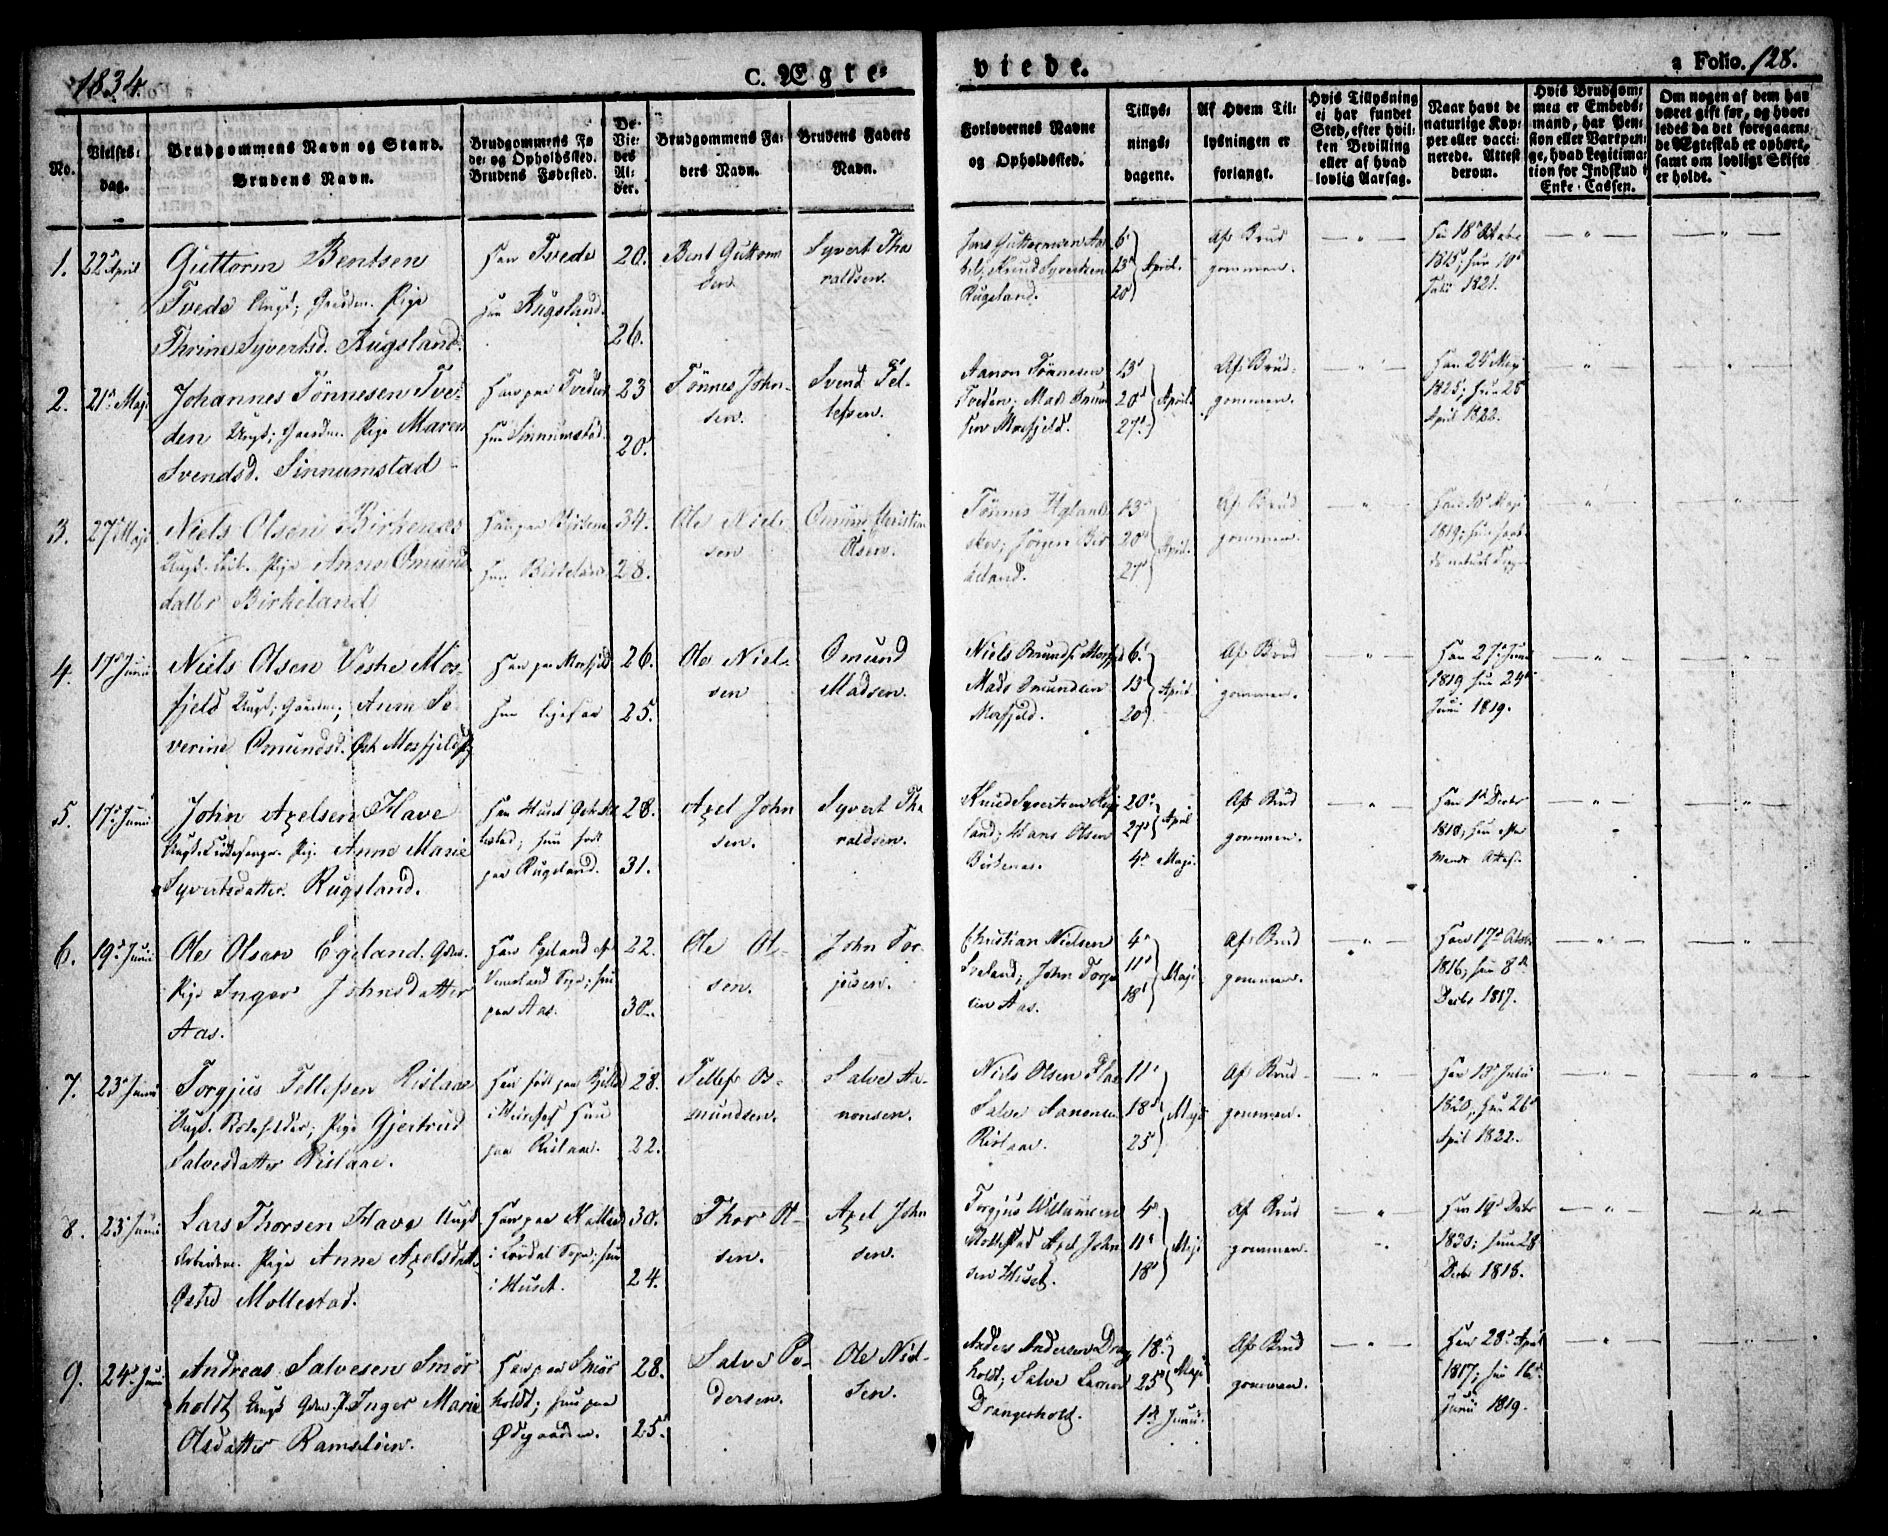 1834
C. Ægte-
viede.
a Folio. 128.
No.
Vielses-
dag.
Brudgommens Navn og Stand.
Brudens Navn.
Brudgommens Fø
de- og Opholdssted.
Brudens Fødested.
De
Vie-
des
Al-
der.
Brudgommens Fa-
ders Navn.
Brudens Faders
Navn.
Forlovernes Navne
og Opholdssted.
Tillys-
nings-
dagene.
Af Hvem Til-
lysningen er
forlangt.
Hvis Tillysning
ei har fundet
Sted, efter hvil-
ken Bevilling
eller af hvad
lovlig Aarsag.
Naar havt de
naturlige Kop-
per eller vacci-
nerede. Attest
derom.
Hvis Brudgom-
men er Embeds-
mand, har Pen-
sion eller Vartpen-
ge, hvad Legitima-
tion for Indskud i
Enke-Cassen.
Om nogen af dem har
været gift før, og hvor-
ledes da det foregaaen-
de Ægteskab er ophørt,
samt om lovligt Skifte
er holdt.
1. 22d April
Guttorm Bentsen
Tvede Ungk; Gaardm. Pige
Thrine Syvertsd. Rugsland.
Han Tvede
hun Rugsland.
20.
26.
Bent Guttorm
sen
Syvert Tha
raldsen.
Knud Syvertsen
Rugsland.
6
13
20
April.
Af Brud
gommen.
Han 18 Octobr
1815; hun 10
Julii 1821.
2. 21d Maji
Johannes Tønnesen Tve-
den Ungk; Gaardm. Pige Maren
Svendsd. Sinnumstad
Han paa Tveden
hun Sinnumstad.
23
20.
Tønnes John-
sen.
Svend Tel-
lefsen.
Aanon Tønnesen
Tveden; Mads Omun
sen Mosfjeld.
13
20
27
April
Af Brud-
gommen.
Han 24 Maji
1825; hun 25
April 1822.
3. 27d Maji
Niels Olsen Birkenes
Pige Anne Omunds
datter Birkeland
Han paa Birkenes
hun Birkeland
34.
28.
Ole Niel-
sen
Omund Christian
Olsen.
Tønnes Hegland
Jørgen Bir
keland.
13
20
27
April.
Af Brud
gommen.
1819; hun havt
de naturl. Kopper
4. 17d Junii
Niels Olsen Vestre Mos-
fjeld Ungk; Gaardm; Anne Se
verine Omundsd. Øst Mosfjeld
Han paa Mosfjeld
hun ligesaa
26.
25.
Ole Niel-
sen
Omund
Madsen.
Niels Omunds. Mosfjeld
Mads Omundsen
Mosfjeld.
6
13
20
April
Af Brud
gommen.
Han 27d Junii
1819 hun 24d
Junii 1819.
5. 17d Junii
John Axelsen Have
Pige Anne Marie
Syvertsdatter Rugsland.
hun født
paa Rugsland.
28.
31.
Axel John
sen.
Syvert Tha
raldsen.
Knud Syvertsen Rugs
land; Hans Olsen
Birkenes.
20
27
April
4d Maji.
Af Brud
gommen.
Han 1d Decbr
1818; hun
6. 19d Junii
Ole Olsen Egeland. Gdm.
Pige Inger Johnsdatter
Aas.
Han Egeland af
Vennesland Sogn; hun
paa Aas.
22.
30.
Ole Ol-
sen.
John Tor-
jusen.
Christian Nielsen
John Torju
sen Aas.
4
11
18
Maji
Af Brud
gommen.
Han 17d Octobr
1816; hun 8d
Decbr 1817.
7. 23d Junii
Torgjus Tellefsen Rislaae
Ungk. Pige Gjertrud
Salvesdatter Rislaae.
hun
paa Rislaae.
28.
22.
Tellef Os-
mundsen.
Salve Aa-
nonsen.
Niels Olsen
Salve Aanonsen
Rislaae.
11
18
25
Maji
Af Brud-
gommen.
Han 13 Julii
1820, hun 26d
April 1822.
8. 23d Junii
Lars Thorsen Have Ungk
Arbeidsm. Pige Anne Axelsdatter
Østre Mollestad.
hun
i Huset.
30.
24.
Thor Ol-
sen.
Axel John
sen.
Torgjus Wilumsen
Mollestad Axel John
sen Huset.
4
11
18
Maji
Af Brud
gommen.
Han 19d Decbr
1830; hun 28
Decbr 1818.
9. 24d Junii
Andreas Salvesen Smør
holdt Ungk Gdm. P. Inger Marie
Olsdatter Ramselien.
Han paa Smør
holdt; hun paa
Ødegaarden.
28.
25.
Salve Pe-
dersen.
Ole Niel-
sen.
Anders Andersen Drang
holdt; Salve Larsen
Drangsholdt.
18
25
Maji
1d Junii.
Af Brud
gommen.
Han 28d April
1817; hun 16d
Junii 1819.